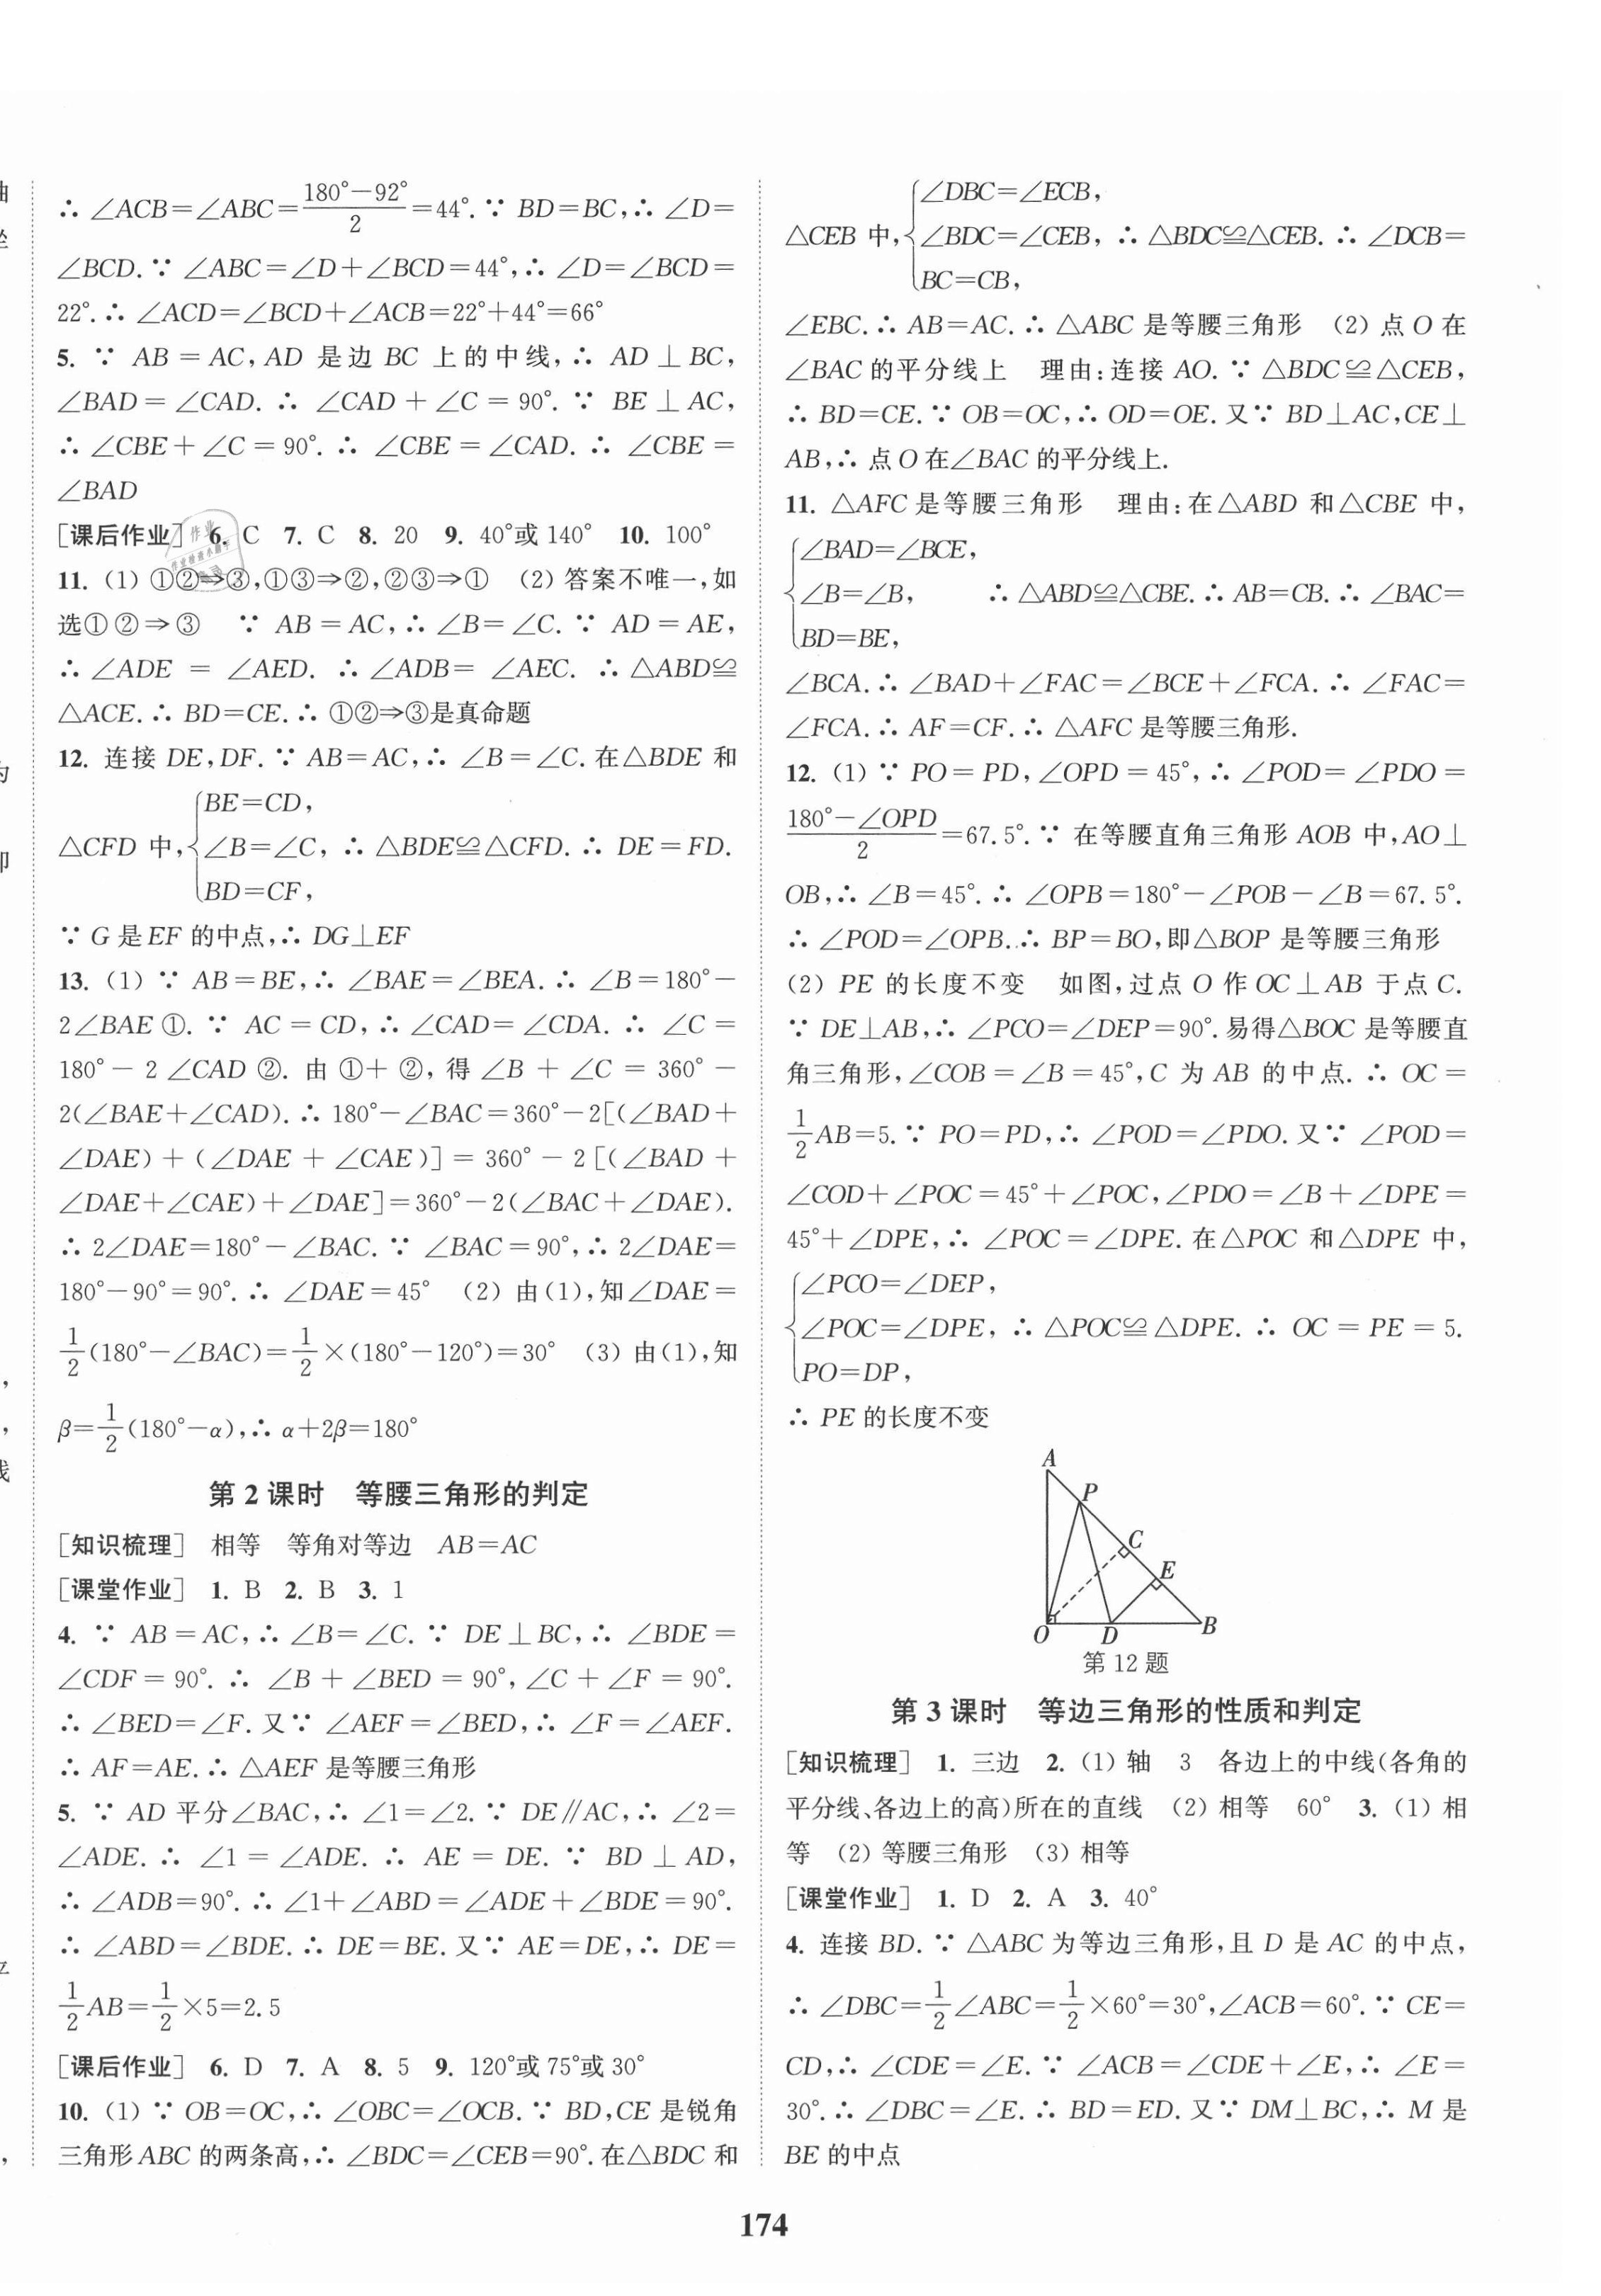 ∴ ∠ACB=∠ABC=(180°−92°)/2=44°. ∵ BD=BC,∴ ∠D=
∠BCD. ∵ ∠ABC=∠D+∠BCD=44°,∴ ∠D=∠BCD=
22°. ∴ ∠ACD=∠BCD+∠ACB=22°+44°=66°
5. ∵ AB=AC,AD 是边 BC 上的中线,∴ AD⊥BC,
∠BAD=∠CAD. ∴ ∠CAD+∠C=90°. ∵ BE⊥AC,
∴ ∠CBE+∠C=90°. ∴ ∠CBE=∠CAD. ∴ ∠CBE=
∠BAD
[课后作业] 6. C 7. C 8. 20 9. 40°或 140° 10. 100°
11. (1) ①②⇒③,①③⇒②,②③⇒① (2) 答案不唯一,如
选①②⇒③ ∵ AB=AC,∴ ∠B=∠C. ∵ AD=AE,
∴ ∠ADE=∠AED. ∴ ∠ADB=∠AEC. ∴ △ABD≌
△ACE. ∴ BD=CE. ∴ ①②⇒③是真命题
12. 连接 DE,DF. ∵ AB=AC,∴ ∠B=∠C. 在△BDE 和
BE=CD,
△CFD 中,∠B=∠C, ∴ △BDE≌△CFD. ∴ DE=FD.
BD=CF,
∵ G 是EF 的中点,∴ DG⊥EF
13. (1) ∵ AB=BE,∴ ∠BAE=∠BEA. ∴ ∠B=180°−
2∠BAE ①. ∵ AC=CD,∴ ∠CAD=∠CDA. ∴ ∠C=
180°−2∠CAD ②. 由①+②,得∠B+∠C=360°−
2(∠BAE+∠CAD). ∴ 180°−∠BAC=360°−2[(∠BAD+
∠DAE)+(∠DAE+∠CAE)]=360°−2[(∠BAD+
∠DAE+∠CAE)+∠DAE]=360°−2(∠BAC+∠DAE).
∴ 2∠DAE=180°−∠BAC. ∵ ∠BAC=90°,∴ 2∠DAE=
180°−90°=90°. ∴ ∠DAE=45° (2) 由(1),知∠DAE=
1/2(180°−∠BAC)=1/2×(180°−120°)=30° (3) 由(1),知
β=1/2(180°−α),∴ α+2β=180°
第 2 课时 等腰三角形的判定
[知识梳理] 相等 等角对等边 AB=AC
[课堂作业] 1. B 2. B 3. 1
4. ∵ AB=AC,∴ ∠B=∠C. ∵ DE⊥BC,∴ ∠BDE=
∠CDF=90°. ∴ ∠B+∠BED=90°,∠C+∠F=90°.
∴ ∠BED=∠F. 又∵ ∠AEF=∠BED,∴ ∠F=∠AEF.
∴ AF=AE. ∴ △AEF 是等腰三角形
5. ∵ AD 平分∠BAC,∴ ∠1=∠2. ∵ DE∥AC,∴ ∠2=
∠ADE. ∴ ∠1=∠ADE. ∴ AE=DE. ∵ BD⊥AD,
∴ ∠ADB=90°. ∴ ∠1+∠ABD=∠ADE+∠BDE=90°.
∴ ∠ABD=∠BDE. ∴ DE=BE. 又∵ AE=DE,∴ DE=
1/2AB=1/2×5=2.5
[课后作业] 6. D 7. A 8. 5 9. 120°或 75°或 30°
10. (1) ∵ OB=OC,∴ ∠OBC=∠OCB. ∵ BD,CE 是锐角
三角形 ABC 的两条高,∴ ∠BDC=∠CEB=90°. 在△BDC 和
∠DBC=∠ECB,
△CEB 中,∠BDC=∠CEB, ∴ △BDC≌△CEB. ∴ ∠DCB=
BC=CB,
∠EBC. ∴ AB=AC. ∴ △ABC 是等腰三角形 (2) 点 O 在
∠BAC 的平分线上 理由:连接 AO. ∵ △BDC≌△CEB,
∴ BD=CE. ∵ OB=OC,∴ OD=OE. 又∵ BD⊥AC,CE⊥
AB,∴ 点 O 在∠BAC 的平分线上.
11. △AFC 是等腰三角形 理由:在△ABD 和△CBE 中,
∠BAD=∠BCE,
∠B=∠B, ∴ △ABD≌△CBE. ∴ AB=CB. ∴ ∠BAC=
BD=BE,
∠BCA. ∴ ∠BAD+∠FAC=∠BCE+∠FCA. ∴ ∠FAC=
∠FCA. ∴ AF=CF. ∴ △AFC 是等腰三角形.
12. (1) ∵ PO=PD,∠OPD=45°,∴ ∠POD=∠PDO=
(180°−∠OPD)/2=67.5°. ∵ 在等腰直角三角形 AOB 中,AO⊥
OB,∴ ∠B=45°. ∴ ∠OPB=180°−∠POB−∠B=67.5°.
∴ ∠POD=∠OPB. ∴ BP=BO,即△BOP 是等腰三角形
(2) PE 的长度不变 如图,过点 O 作 OC⊥AB 于点 C.
∵ DE⊥AB,∴ ∠PCO=∠DEP=90°. 易得△BOC 是等腰直
角三角形,∠COB=∠B=45°,C 为 AB 的中点. ∴ OC=
1/2AB=5. ∵ PO=PD,∴ ∠POD=∠PDO. 又∵ ∠POD=
∠COD+∠POC=45°+∠POC,∠PDO=∠B+∠DPE=
45°+∠DPE,∴ ∠POC=∠DPE. 在△POC 和△DPE 中,
∠PCO=∠DEP,
∠POC=∠DPE, ∴ △POC≌△DPE. ∴ OC=PE=5.
PO=DP,
∴ PE 的长度不变
A
P
C
E
O D B
第 12 题
第 3 课时 等边三角形的性质和判定
[知识梳理] 1. 三边 2. (1) 轴 3 各边上的中线(各角的
平分线、各边上的高)所在的直线 (2) 相等 60° 3. (1) 相
等 (2) 等腰三角形 (3) 相等
[课堂作业] 1. D 2. A 3. 40°
4. 连接 BD. ∵ △ABC 为等边三角形,且 D 是 AC 的中点,
∴ ∠DBC=1/2∠ABC=1/2×60°=30°,∠ACB=60°. ∵ CE=
CD,∴ ∠CDE=∠E. ∵ ∠ACB=∠CDE+∠E,∴ ∠E=
30°. ∴ ∠DBC=∠E. ∴ BD=ED. 又∵ DM⊥BC,∴ M 是
BE 的中点
174